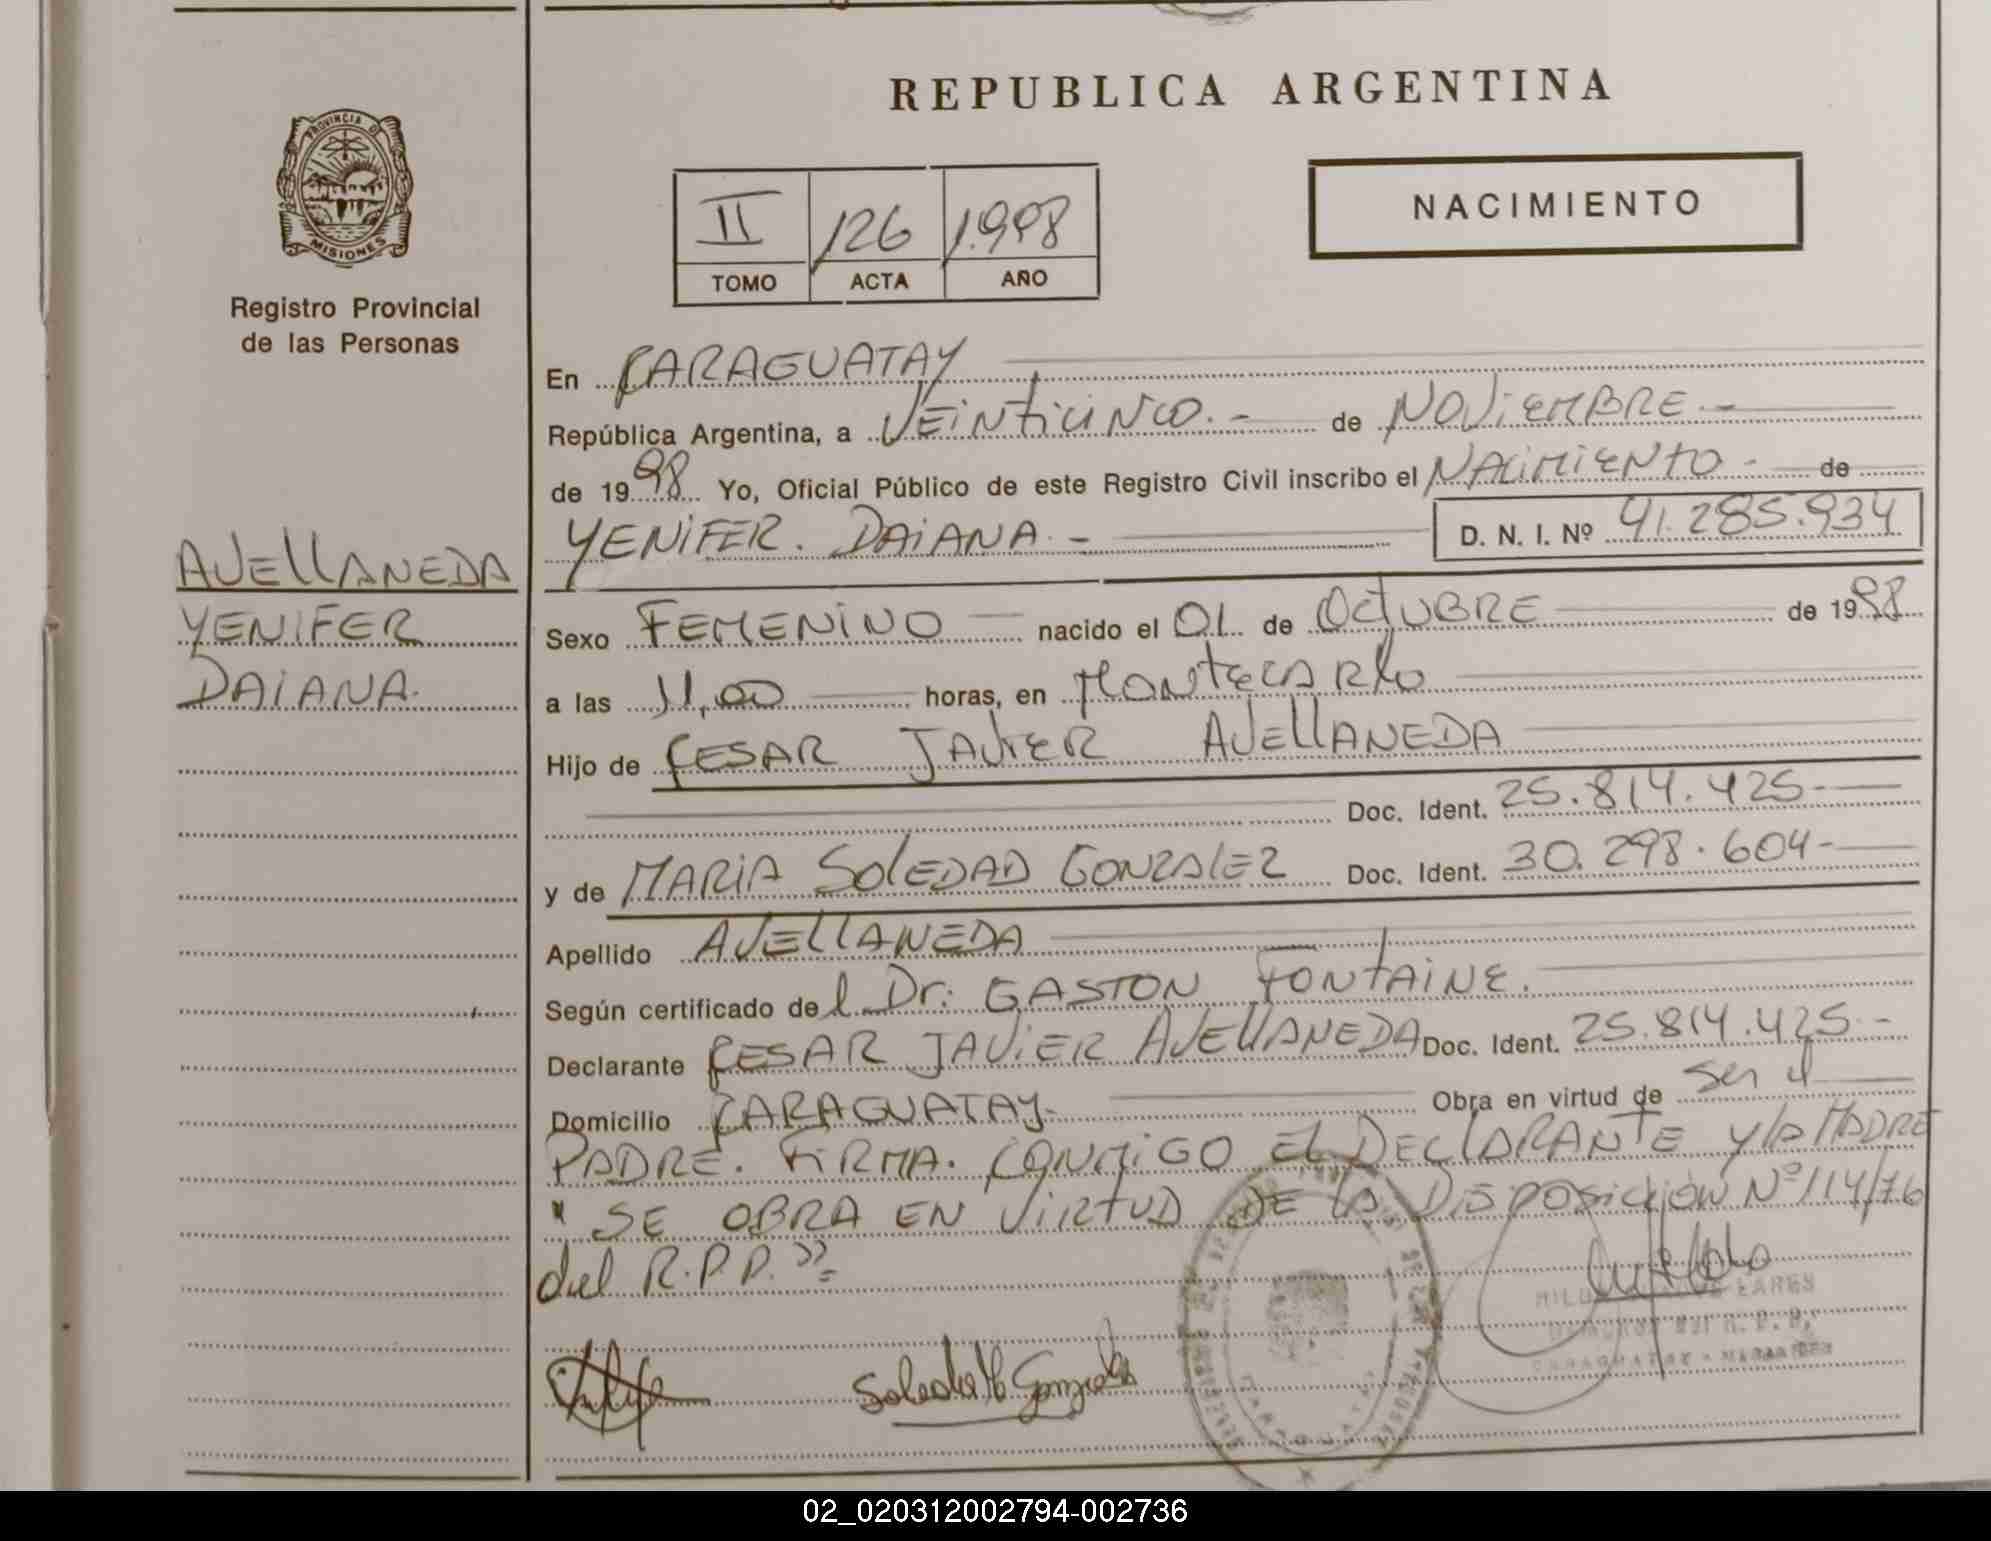 REPUBLICA ARGENTINA
PROVINCIA D
MISIONES
Registro Provincial
de las Personas
II 126 1.998
TOMO ACTA AÑO
NACIMIENTO
En CARAGUATAY
República Argentina, a VEINTICINCO.- de NOVIEMBRE.-
de 1998 Yo, Oficial Público de este Registro Civil inscribo el NACIMIENTO - de
YENIFER. DAIANA.- D. N. I. Nº 41.285.934
AVELLANEDA
YENIFER
DAIANA.
Sexo FEMENINO nacido el 01 de OCTUBRE de 1998
a las 11,00 horas, en MONTECARLO
Hijo de CESAR JAVIER AVELLANEDA
Doc. Ident. 25.814.425-
y de MARIA SOLEDAD GONZALEZ Doc. Ident. 30.298.604-
Apellido AVELLANEDA
Según certificado del Dr: GASTON FONTAINE.
Declarante CESAR JAVIER AVELLANEDA Doc. Ident. 25.814.425-
Domicilio CARAGUATAY- Obra en virtud de ser el
PADRE. FIRMA. CONMIGO EL DECLARANTE Y la MADRE
" SE OBRA EN VIRTUD DE la DISPOSICION Nº 114/76
del R.P.P."=
Soledad M Gonzalez
CARAGUATAY
CARAGUATAY - MISIONES
02_020312002794-002736